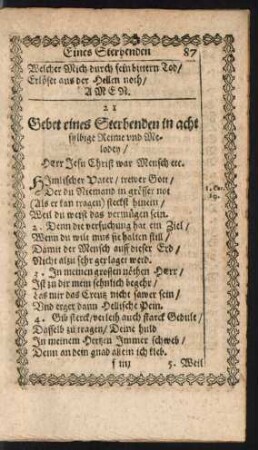 Eines Sterbenden 87
Welcher Mich durch sein bittern Tod/
Erlöset aus der Hellen noth/
AMEN.
21
Gebet eines Sterbenden in acht
sylbige Reime vnd Me-
lodey/
HErr Jesu Christ war Mensch etc.
HImlischer Vater/ trewer Gott/
Der du Niemand in grösser not
(Als er kan tragen) steckst hinein/
Weil du weist das vermügen sein.
2. Denn die versuchung hat ein Ziel/
Wenn du wilt mus sie halten still/
Damit der Mensch auff dieser Erd/
Nicht alzu sehr geplaget werd.
3. In meinen grossen nöthen HErr/
Ist zu dir mein sehnlich begehr/
Las mir das Creutz nicht sawer sein/
Und erger dann Hellische Pein.
4. Gib sterck/ verleih auch starck Gedult/
Dasselb zu tragen/ Deine huld
In meinem Hertzen Immer schweb/
Denn an dem gnad allein ich kleb.
5. Weil